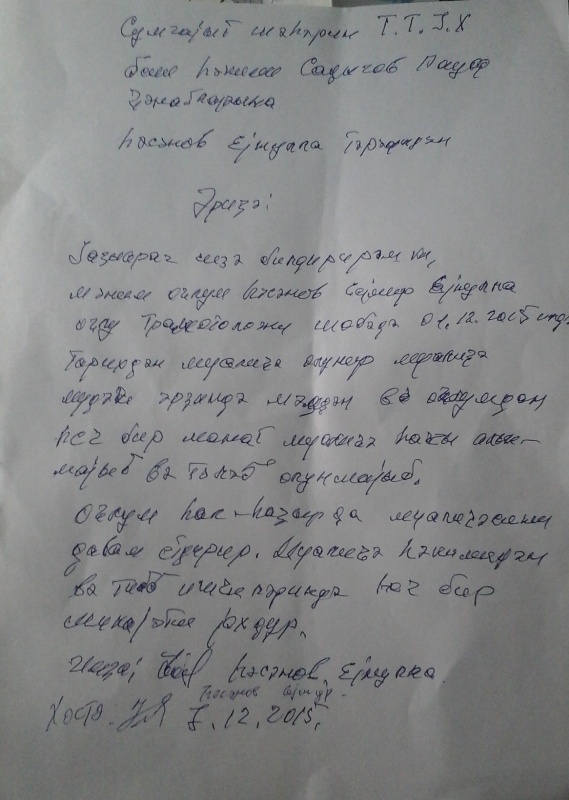 Сумгајыт шәһәрин Т.Т.Ј.Х
баш һәкими Садыгов Рауф
Ҹәнабларына
Һәсәнов Ејнулла Тәрәфиндән
Әризә:
Јазыараг сизә билдирирәм ки,
мәним оғлум Һәсәнов Ејнулла
оғлу Траматоложи шөбәдә 01.12.2015
Тарихдән муаличә олунур муаличә
мүддәти әрзиндә мәндән вә оғлумдан
һеч бир манат муаличә һаггы алын-
мајыб вә тәләб олунмајыб.
Оғлум һал-һазырда муаличәсини
давам етдирир. Муаличә һәкимләрдән
вә тибб ишчиләриндә һеч бир
шикајәтим јохдур.
Һәсәнов Ејнулла.
Һәсәнов
7.12.2015.